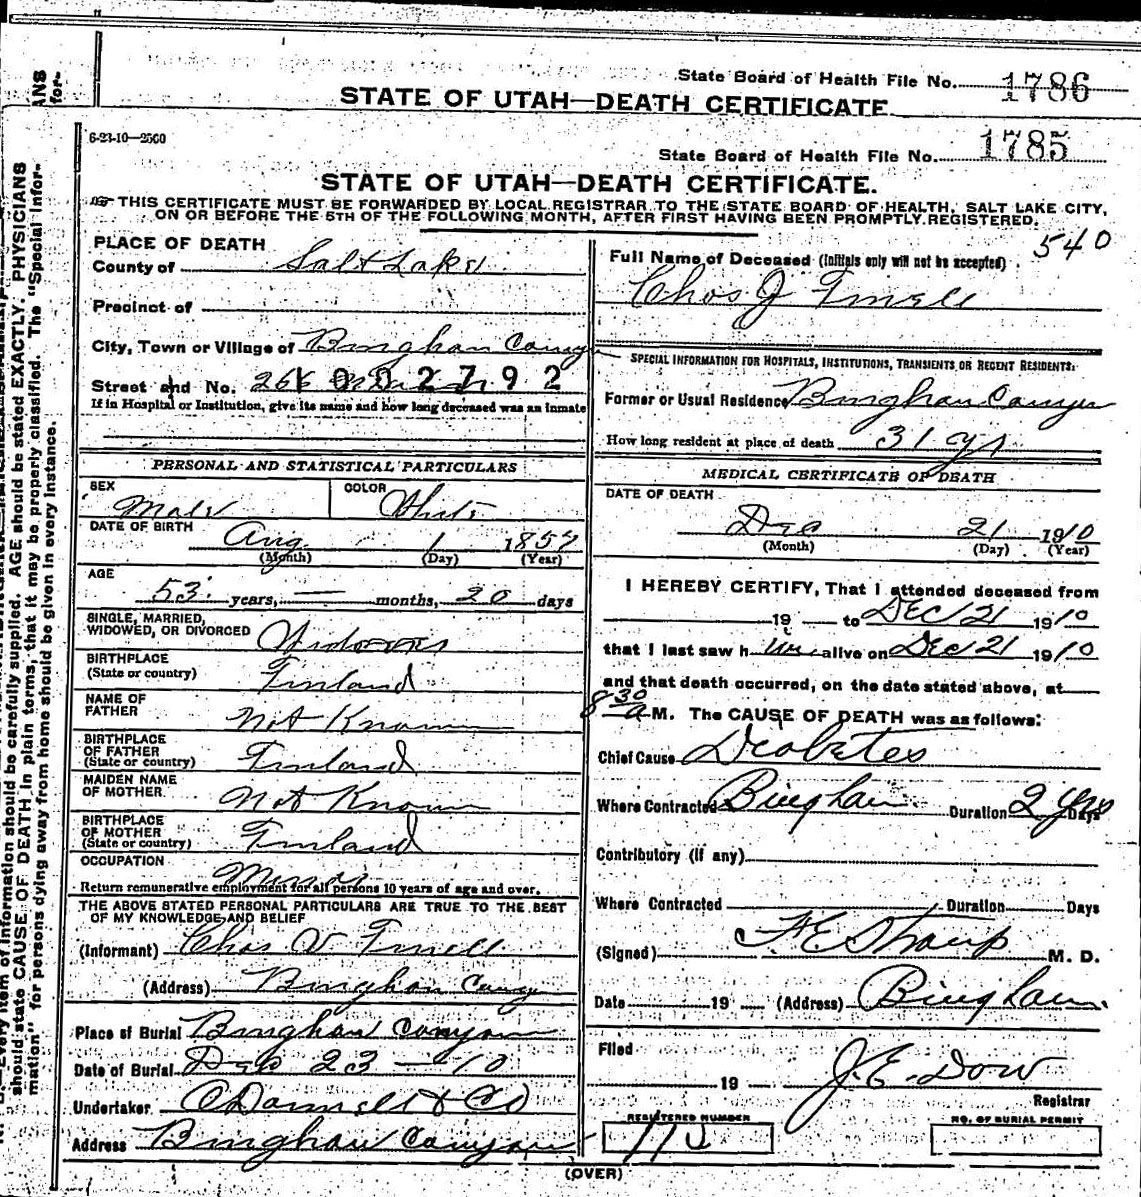 ANS
for-
State Board of Health File No. 1786
STATE OF UTAH—DEATH CERTIFICATE.
6-23-10—2500
State Board of Health File No. 1785
STATE OF UTAH—DEATH CERTIFICATE.
THIS CERTIFICATE MUST BE FORWARDED BY LOCAL REGISTRAR TO THE STATE BOARD OF HEALTH, SALT LAKE CITY,
ON OR BEFORE THE 5TH OF THE FOLLOWING MONTH, AFTER FIRST HAVING BEEN PROMPTLY REGISTERED.
540
PLACE OF DEATH
County of Salt Lake
Precinct of
City, Town or Village of Bingham Canyon
Street and No. 266
002792
If in Hospital or Institution, give its name and how long deceased was an inmate
PERSONAL AND STATISTICAL PARTICULARS
SEX Male COLOR White
DATE OF BIRTH Aug 1 1857
(Month) (Day) (Year)
AGE
53 years, — months, 20 days
SINGLE, MARRIED,
WIDOWED, OR DIVORCED
BIRTHPLACE
(State or country) Finland
NAME OF
FATHER Not Known
BIRTHPLACE
OF FATHER
(State or country) Finland
MAIDEN NAME
OF MOTHER Not Known
BIRTHPLACE
OF MOTHER
(State or country) Finland
OCCUPATION
Return remunerative employment for all persons 10 years of age and over.
THE ABOVE STATED PERSONAL PARTICULARS ARE TRUE TO THE BEST
OF MY KNOWLEDGE AND BELIEF
(Informant) Chas V
(Address) Bingham Canyon
Place of Burial Bingham Canyon
Date of Burial Dec 23 — 10
Undertaker O'Donnell & Co
Address Bingham Canyon
Full Name of Deceased (Initials only will not be accepted)
Chas J
SPECIAL INFORMATION FOR HOSPITALS, INSTITUTIONS, TRANSIENTS OR RECENT RESIDENTS:
Former or Usual Residence Bingham Canyon
How long resident at place of death 31 yrs
MEDICAL CERTIFICATE OF DEATH
DATE OF DEATH
Dec 21 1910
(Month) (Day) (Year)
I HEREBY CERTIFY, That I attended deceased from
19 to DEC 21 1910
that I last saw h im alive on DEC 21 1910
and that death occurred, on the date stated above, at
8 30 a M. The CAUSE OF DEATH was as follows:
Chief Cause Diabetes
Where Contracted Bingham Duration 2 yrs Days
Contributory (if any)
Where Contracted Duration Days
(Signed) F E Straup M. D.
Date 19 (Address) Bingham
Filed
19 J. E. Dow
Registrar
REGISTERED NUMBER
NO. OF BURIAL PERMIT
(OVER)
Every item of information should be carefully supplied. AGE should be stated EXACTLY. PHYSICIANS
should state CAUSE OF DEATH in plain terms, that it may be properly classified. The "Special Infor-
mation" for persons dying away from home should be given in every instance.